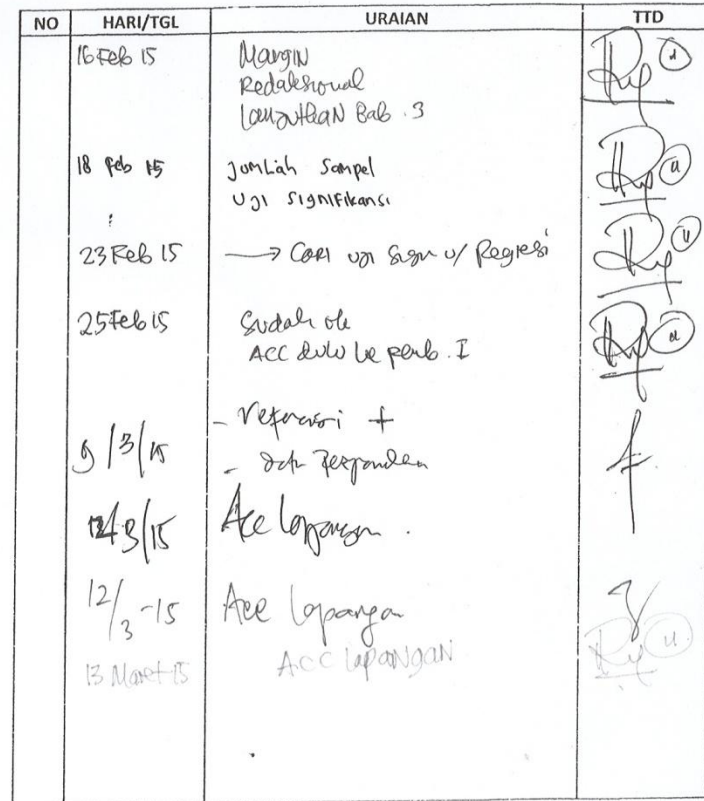 NO HARI/TGL URAIAN TTD
16 Feb 15 Margin
Redaksional
Lanjutkan Bab . 3
18 feb 15 Jumlah Sampel
Uji Signifikansi
23 Feb 15 → Cari uji Sign u/ Regresi
25 Feb 15 Sudah ok
ACC dulu ke pemb. I
9/3/15 - referensi +
- responden
3/15 Acc lapangan .
12/3-15 Acc lapangan
13 Maret 15 ACC lapangan